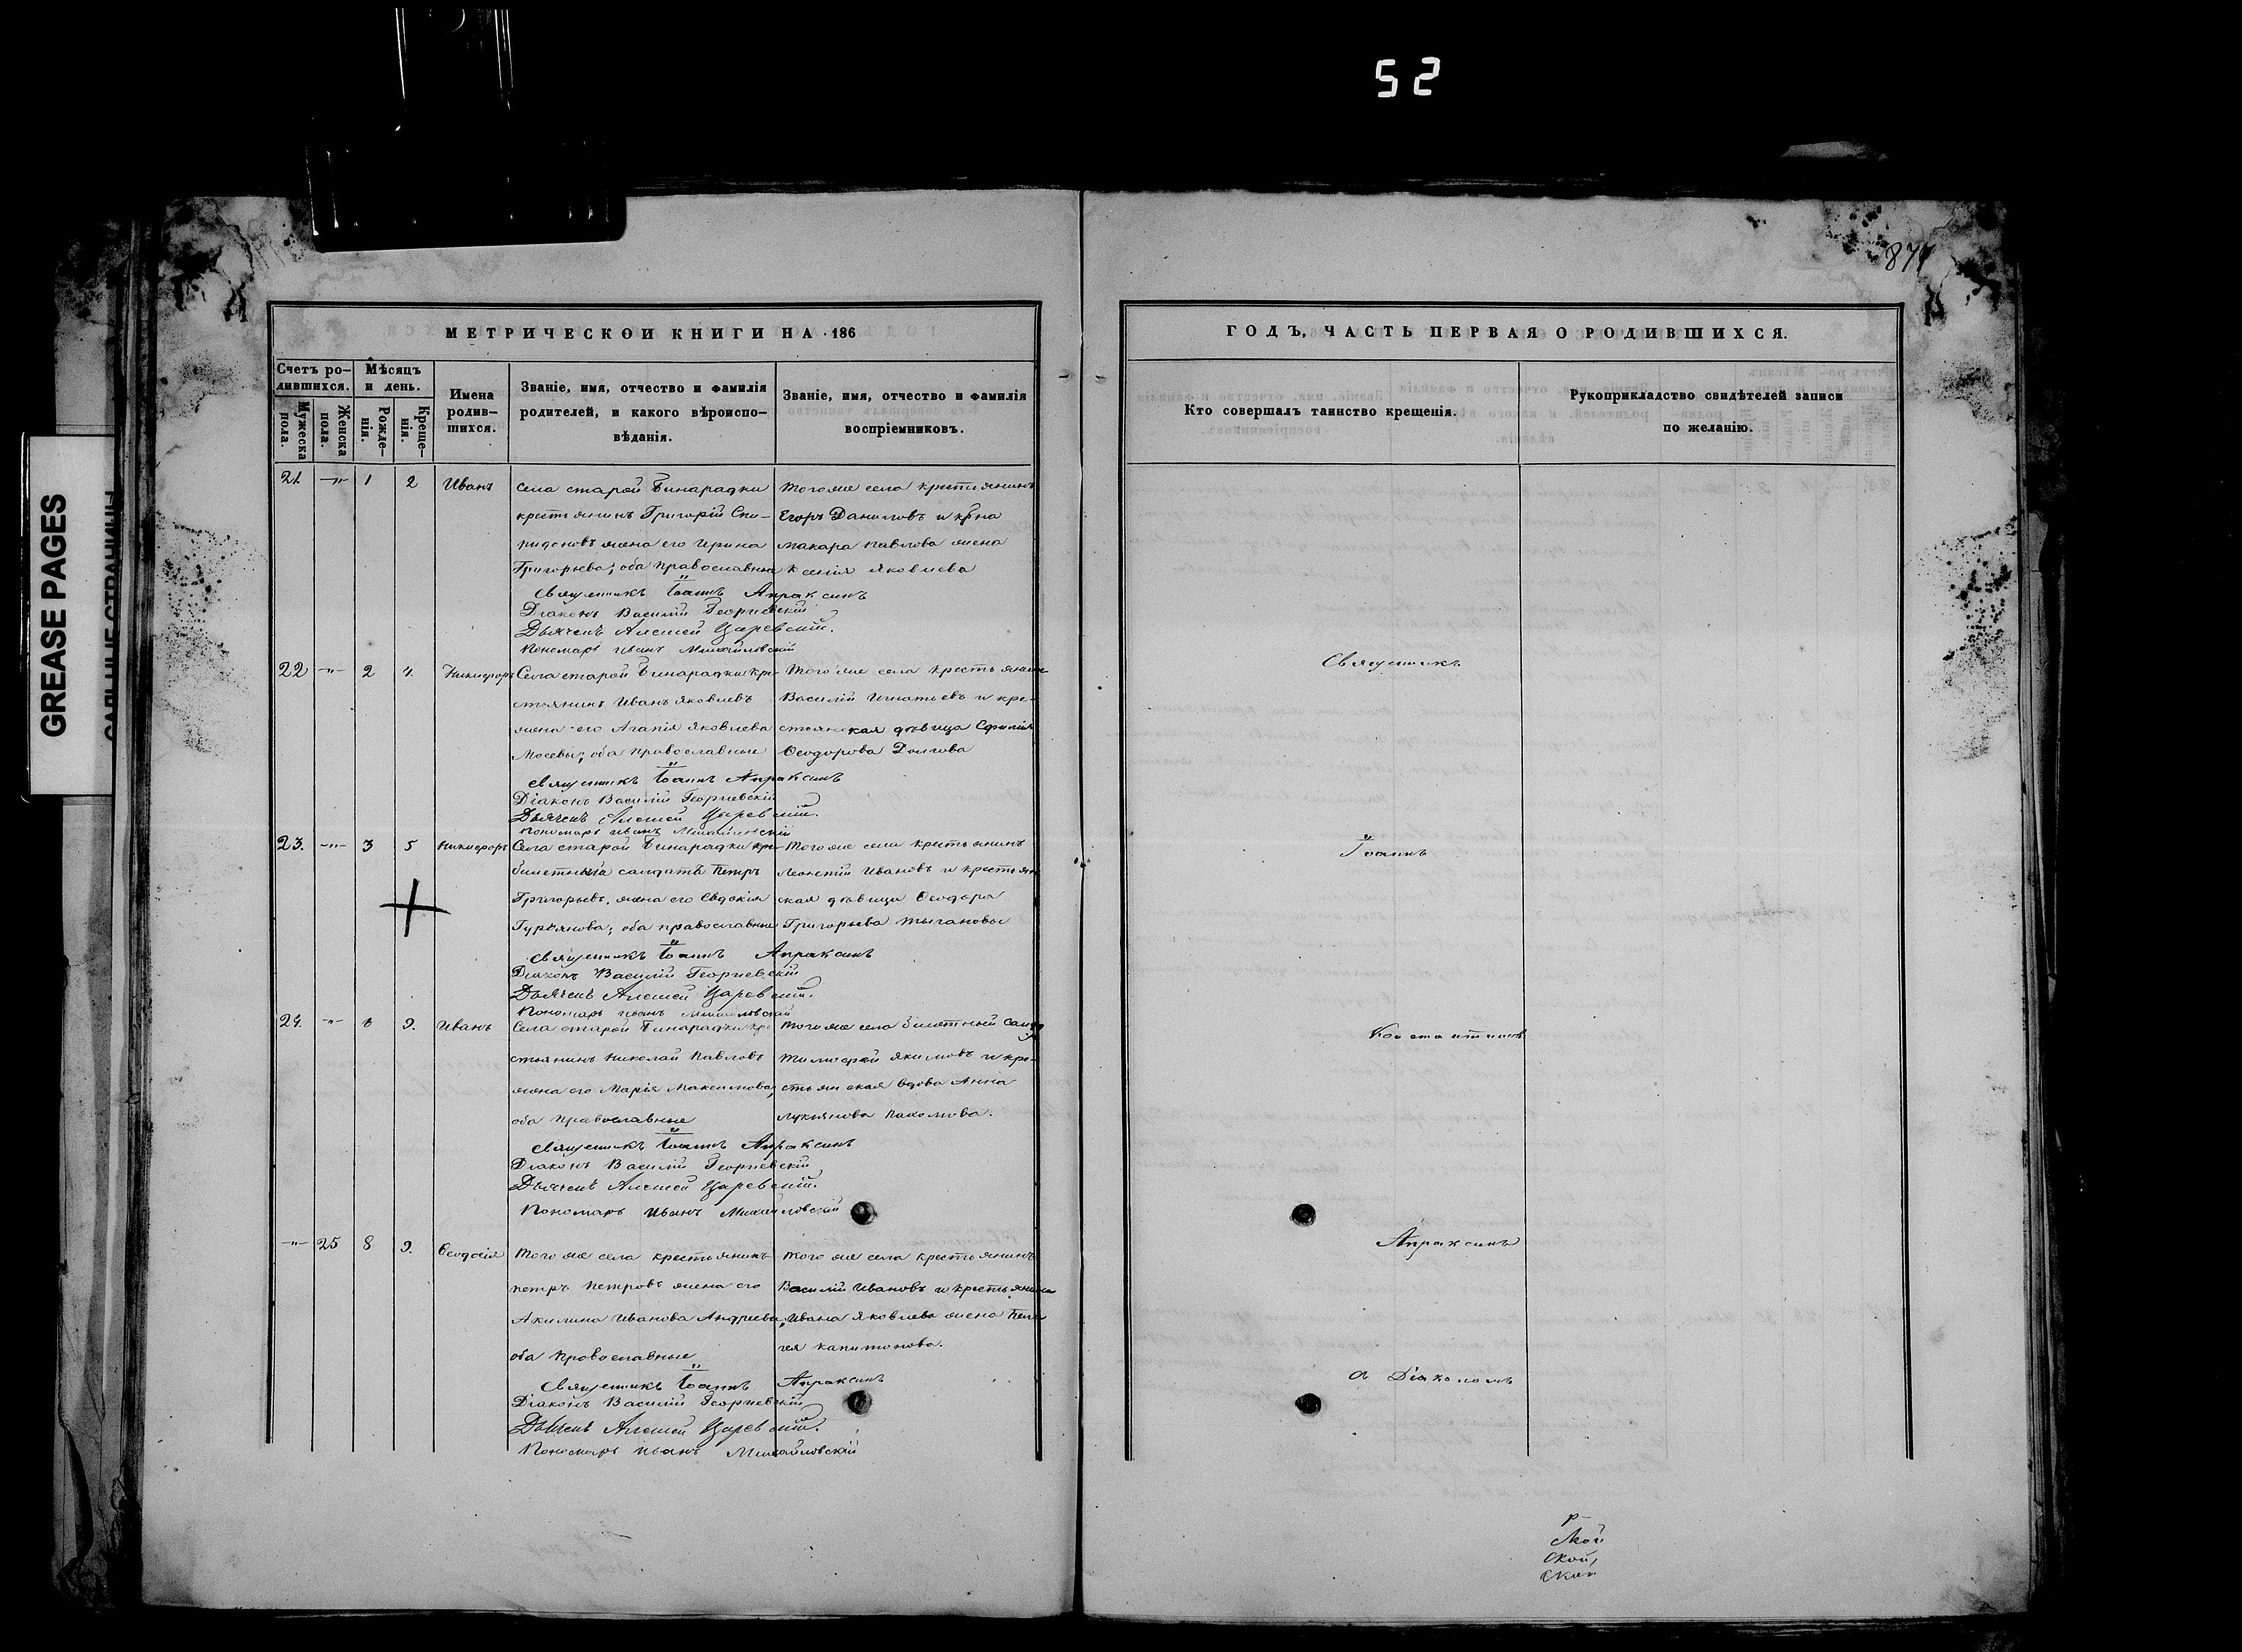 52
87
GREASE PAGES
МЕТРИЧЕСКОЙ КНИГИ НА 186
Счетъ ро-
дившихся.
Мужеска
пола.
Женска
пола.
Мѣсяцъ
и день.
Рожде-
нія.
Креще-
нія.
Имена
родив-
шихся.
Званіе, имя, отчество и фамилія
родителей, и какого вѣроиспо-
вѣданія.
Званіе, имя, отчество и фамилія
воспріемниковъ.
21 -„- 1 2 Иванъ
Села старой Бинарадки
крестьянинъ Григорій Спи-
ридоновъ жена его Ирина
Григорьева; оба православные
Того же села крестьянинъ
Егоръ Даниловъ и
Макара Павлова жена
Ксенія Яковлева
Священникъ Іоаннъ Апраксинъ
Діаконъ Василій Георгіевскій
Дьячекъ Алексей Царевскій.
Пономарь Иванъ Михайловскій
22 -„- 2 4. Никифоръ
Села старой Бинарадки кре-
стьянинъ Иванъ Яковлевъ
жена его Агапія Яковлева
оба православные
Того же села крестьянинъ
Василій Игнатьевъ и кре-
стьянская дѣвица
Ѳеодорова Долгова
Священникъ Іоаннъ Апраксинъ
Діаконъ Василій Георгіевскій
Дьячекъ Алексей Царевскій.
Пономарь Иванъ Михайловскій
23. -„- 3 5 Никифоръ
Села старой Бинарадки
солдатъ Петръ
Григорьевъ, жена его Евдокія
Гурьянова; оба православные
Того же села крестьянинъ
Леонтій Ивановъ и крестьян
ская дѣвица Ѳеодора
Григорьева
Священникъ Іоаннъ Апраксинъ
Діаконъ Василій Георгіевскій
Дьячекъ Алексей Царевскій.
Пономарь Иванъ Михайловскій
24. -„- 9. Иванъ
Села старой Бинарадки кре
стьянинъ Николай Павловъ
жена его Марія Максимова;
оба православные
Того же села билетный
Тимофей Якимовъ и кре-
стьянская вдова Анна
Лукьянова Пахомова.
Священникъ Іоаннъ Апраксинъ
Діаконъ Василій Георгіевскій
Дьячекъ Алексей Царевскій.
Пономарь Иванъ Михайловскій
-„- 25 8 9. Ѳеодосія
Того же села крестьянинъ
Петръ Петровъ жена его
Акилина Иванова Андреева;
оба православные
Того же села крестьянинъ
Василій Ивановъ и крестьянина
Ивана Яковлева жена Пела
гея Капитонова.
Священникъ Іоаннъ Апраксинъ
Діаконъ Василій Георгіевскій
Дьячекъ Алексей Царевскій.
Пономарь Иванъ Михайловскій
ГОДЪ, ЧАСТЬ ПЕРВАЯ О РОДИВШИХСЯ.
Кто совершалъ таинство крещенія.
Рукоприкладство свидѣтелей записи
по желанію.
Священникъ
Іоаннъ
Апраксинъ
съ Діакономъ